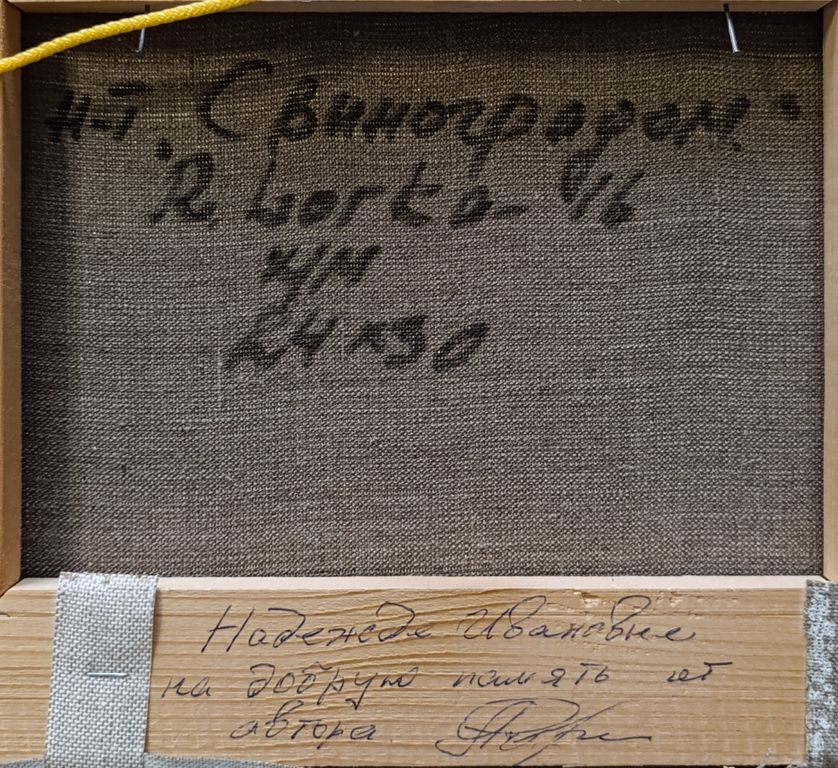 н-т „С виноградом"
R. borka - 16
х/м
24х30
Надежде Ивановне
на добрую память от
автора